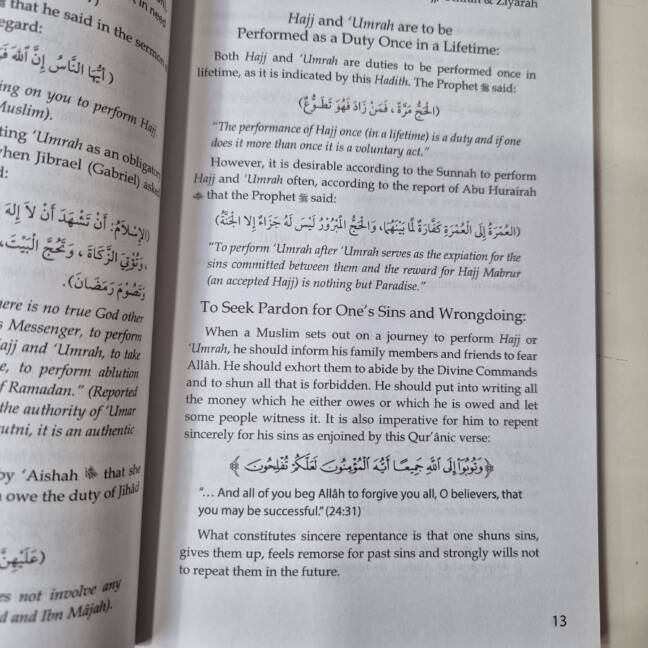 that he said in the sermon
egard:
(أيُّهَا النَّاسُ إِنَّ اللهَ
ing on you to perform Hajj
Muslim).
ting ‘Umrah as an obligatory
when Jibrael (Gabriel) asked
d:
الإِسْلَامُ: أَنْ تَشْهَدَ أَنْ لاَ إِلَهَ
، وَتُؤْتِيَ الزَّكَاةَ ، وَتَحُجَّ الْبَيْتَ،
وَتَصُومَ رَمَضَانَ).
here is no true God other
s Messenger, to perform
Hajj and ‘Umrah, to take
e, to perform ablution
f Ramadan.” (Reported
the authority of ‘Umar
utni, it is an authentic
by ‘Aishah that she
owe the duty of Jihâd
(عَلَيْهِنَّ
es not involve any
d and Ibn Mâjah).
& Ziyarah
Hajj and ‘Umrah are to be
Performed as a Duty Once in a Lifetime:
Both Hajj and ‘Umrah are duties to be performed once in
lifetime, as it is indicated by this Hadith. The Prophet ﷺ said:
(الحَجُّ مَرَّةً ، فَمَنْ زَادَ فَهُوَ تَطَوُّعٌ)
“The performance of Hajj once (in a lifetime) is a duty and if one
does it more than once it is a voluntary act.”
However, it is desirable according to the Sunnah to perform
Hajj and ‘Umrah often, according to the report of Abu Hurairah
that the Prophet ﷺ said:
(العُمْرَةُ إِلَى العُمْرَةِ كَفَّارَةٌ لِمَا بَيْنَهُمَا، وَالحَجُّ المَبْرُورُ لَيْسَ لَهُ جَزَاءٌ إِلا الجَنَّةُ)
“To perform ‘Umrah after ‘Umrah serves as the expiation for the
sins committed between them and the reward for Hajj Mabrur
(an accepted Hajj) is nothing but Paradise.”
To Seek Pardon for One’s Sins and Wrongdoing:
When a Muslim sets out on a journey to perform Hajj or
‘Umrah, he should inform his family members and friends to fear
Allâh. He should exhort them to abide by the Divine Commands
and to shun all that is forbidden. He should put into writing all
the money which he either owes or which he is owed and let
some people witness it. It is also imperative for him to repent
sincerely for his sins as enjoined by this Qur’ânic verse:
﴿وَتُوبُوٓاْ إِلَى ٱللَّهِ جَمِيعًا أَيُّهَ ٱلْمُؤْمِنُونَ لَعَلَّكُمْ تُفْلِحُونَ﴾
“... And all of you beg Allâh to forgive you all, O believers, that
you may be successful.” (24:31)
What constitutes sincere repentance is that one shuns sins,
gives them up, feels remorse for past sins and strongly wills not
to repeat them in the future.
13